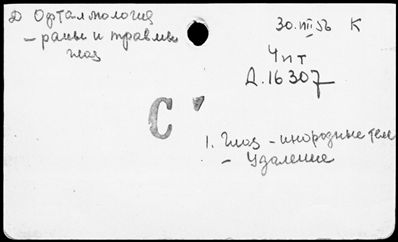 Д Офталмология
– раны и травмы
глаз
30.VIII 56 К
Чит
Д.16307
С
1. Глаз – инородные тела
– Удаление